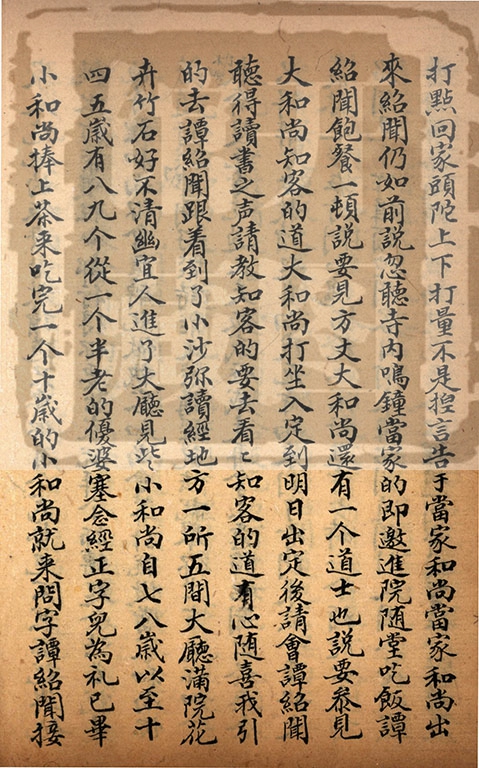 打點回家頭陀上下打量不是揑言告于當家和尚當家和尚出
來紹聞仍如前說忽聽寺內鳴鐘當家的即邀進院随堂吃飯譚
紹聞飽餐一頓說要見方丈大和尚還有一个道士也說要叅見
大和尚知客的道大和尚打坐入定到明日出定後請會譚紹聞
聽得讀書之声請教知客的要去看〻知客的道有心随喜我引
的去譚紹聞跟着到了小沙弥讀經地方一所五間大廳滿院花
卉竹石好不清幽宜人進了大廳見些小和尚自七八歲以至十
四五歲有八九个從一个半老的優婆塞念經正字皃為礼已畢
小和尚捧上茶来吃完一个十歲的小和尚就来問字譚紹聞接